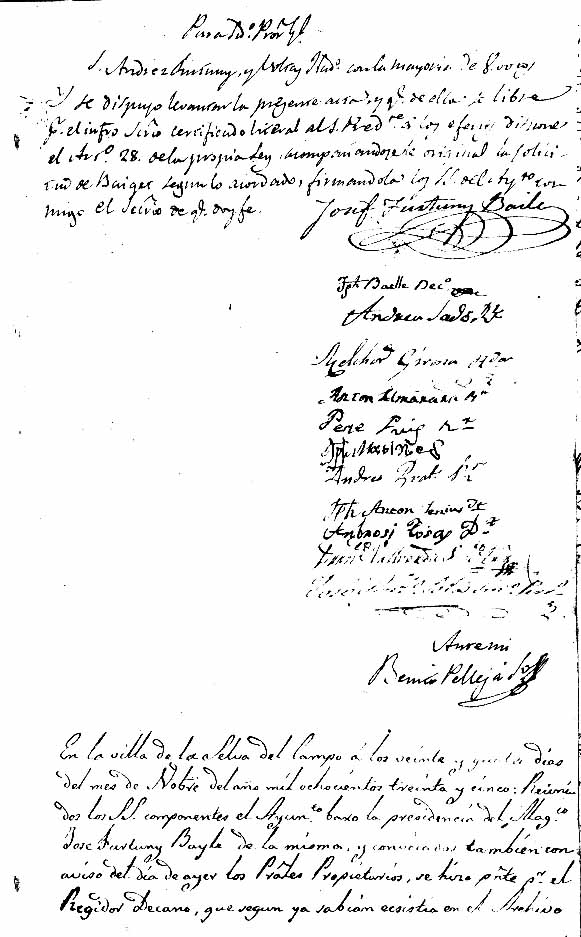 Para Dº. Prôr Gl.
S. Andres Furtuny, y Votay Hadº. con la mayoria de 8 votos
Y se dispuso levantar la presente acta y qe. de ella se libre
pr. el infro Sñrio certificado literal al S. Presdte. a los efectos dispone
el Artº. 28. de la propia Ley acompañandose original la Solici
tud de Baiges segun lo acordado, firmandola los SS. del Aytº con
migo el Sñrio de qe. doy fe.
Josef Furtuny Baile
Jph Baelle Decº
Andreu
Melchor Girona
Anton
Pere Puig Rr
Andreu Prat
Jph Anton
Ambrosi Rosas Dt
Anremi
Benito Pellejá Sriº
En la villa de la Selva del Campo á los veinte y quatro dias
del mes de Nobre del año mil ochocientos treinta y cinco: Reuni
dos los SS. componentes el Ayunto. baxo la presidencia del Magco
Jose Furtuny Bayle de la misma, y convocados también con
aviso del dia de ayer los Prâles Propietarios, se hizo pñte pr. el
Regidor Decano, que segun ya sabian ecsistia en el Archivo